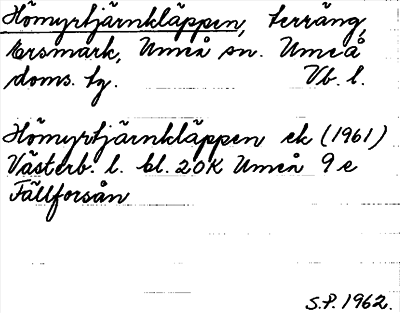 Hömyrtjärnkläppen, terräng,
Ersmark, Umeå sn. Umeå
doms. tg. Vb. l.
Hömyrtjärnkläppen ek (1961)
Västerb. l. bl. 20K Umeå 9e
Fällforsån
S.P. 1962.